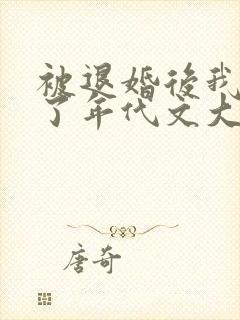 被退婚后我
了年代文大
唐奇